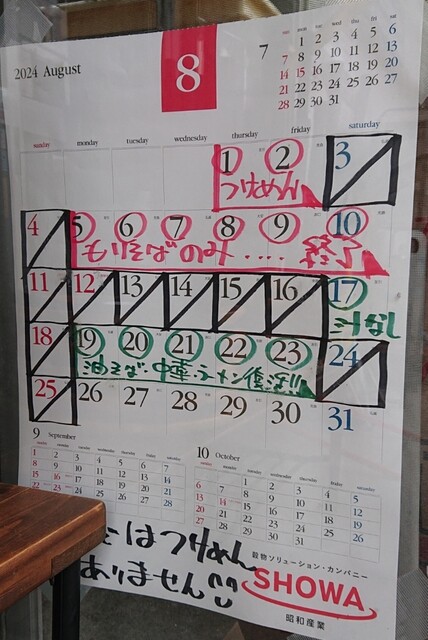 2024 August
8
7
1 2 3 4 5 6
7 8 9 10 11 12 13
14 15 16 17 18 19 20
21 22 23 24 25 26 27
28 29 30 31
sunday monday tuesday wednesday thursday friday saturday
1 2 3
つけめん
4 5 6 7 8 9 10
もりそばのみ....終了
11 12 13 14 15 16 17
汁なし
18 19 20 21 22 23 24
油そば・中華ラーメン復活!!
25 26 27 28 29 30 31
9 September
1 2 3 4 5 6 7
8 9 10 11 12 13 14
15 16 17 18 19 20 21
22 23 24 25 26 27 28
10 October
1 2 3 4 5
6 7 8 9 10 11 12
13 14 15 16 17 18 19
20 21 22 23 24 25 26
27 28 29 30 31
はつけめん
ありません
穀物ソリューション・カンパニー
SHOWA
昭和産業